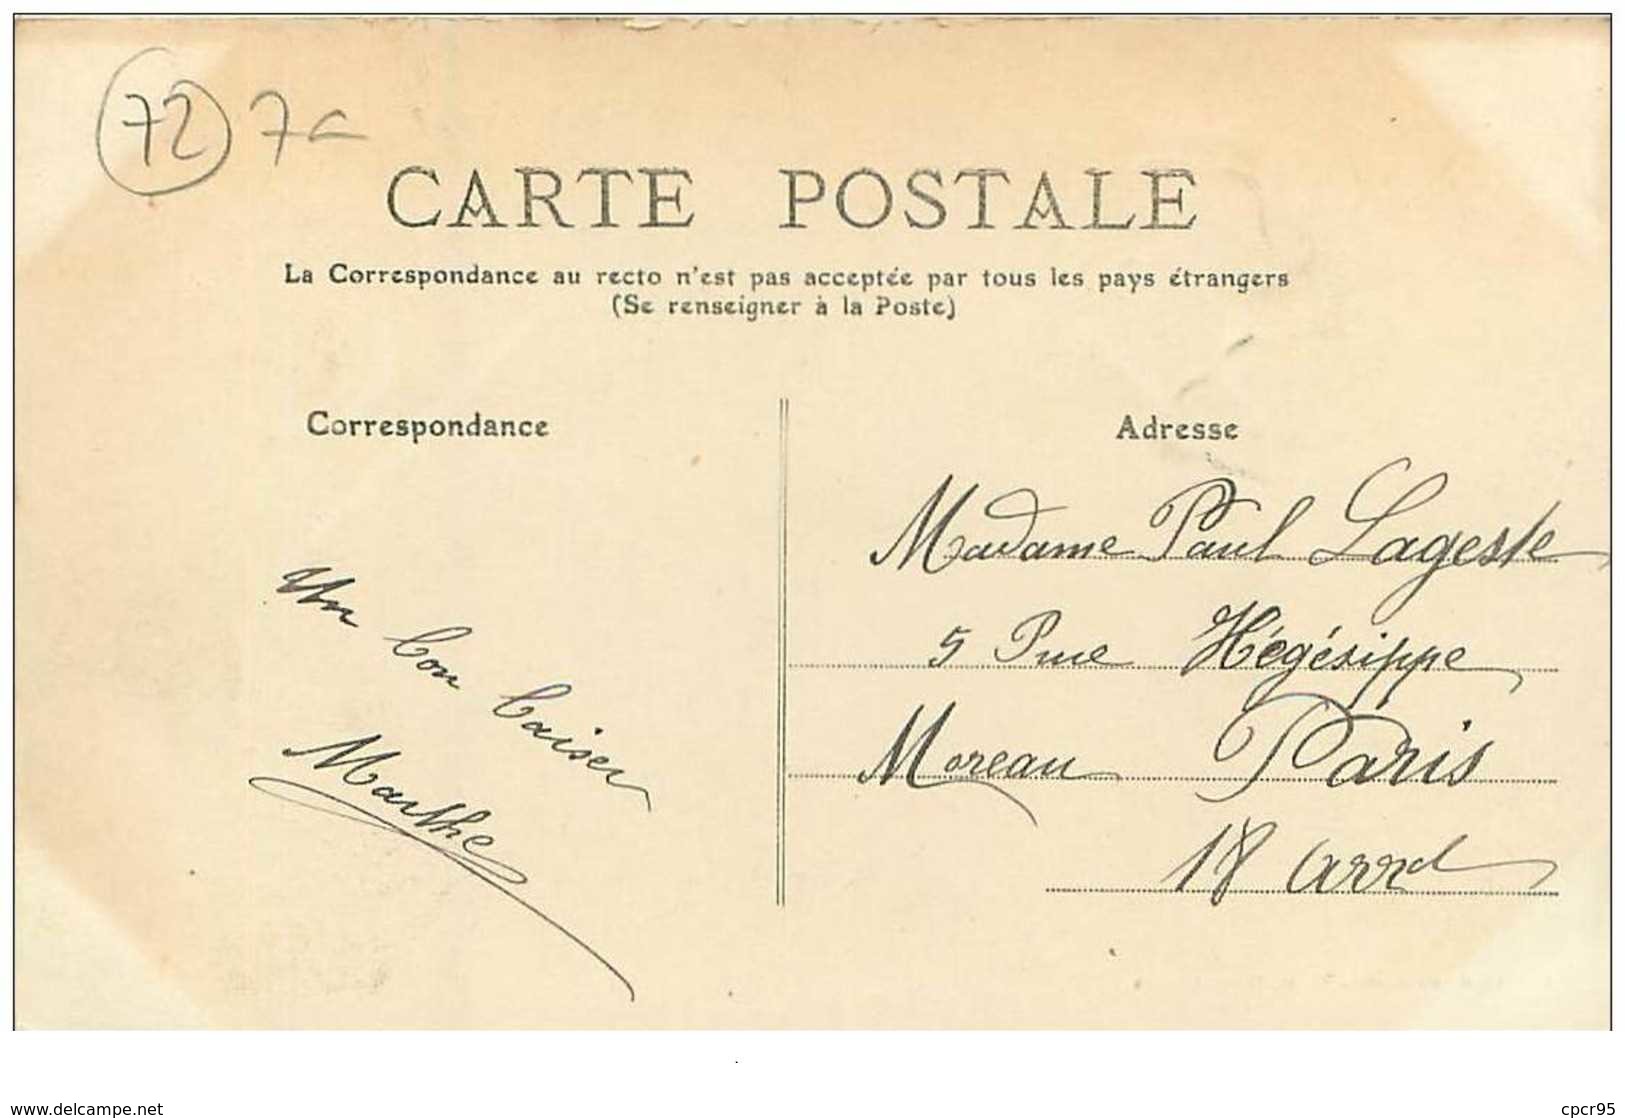 72 7a
CARTE POSTALE
La Correspondance au recto n'est pas acceptée par tous les pays étrangers
(Se renseigner à la Poste)
Correspondance
Un bon baiser
Marthe
Adresse
Madame Paul Lageste
5 Rue Hégésippe
Moreau Paris
18 Arrd
www.delcampe.net
cpcr95